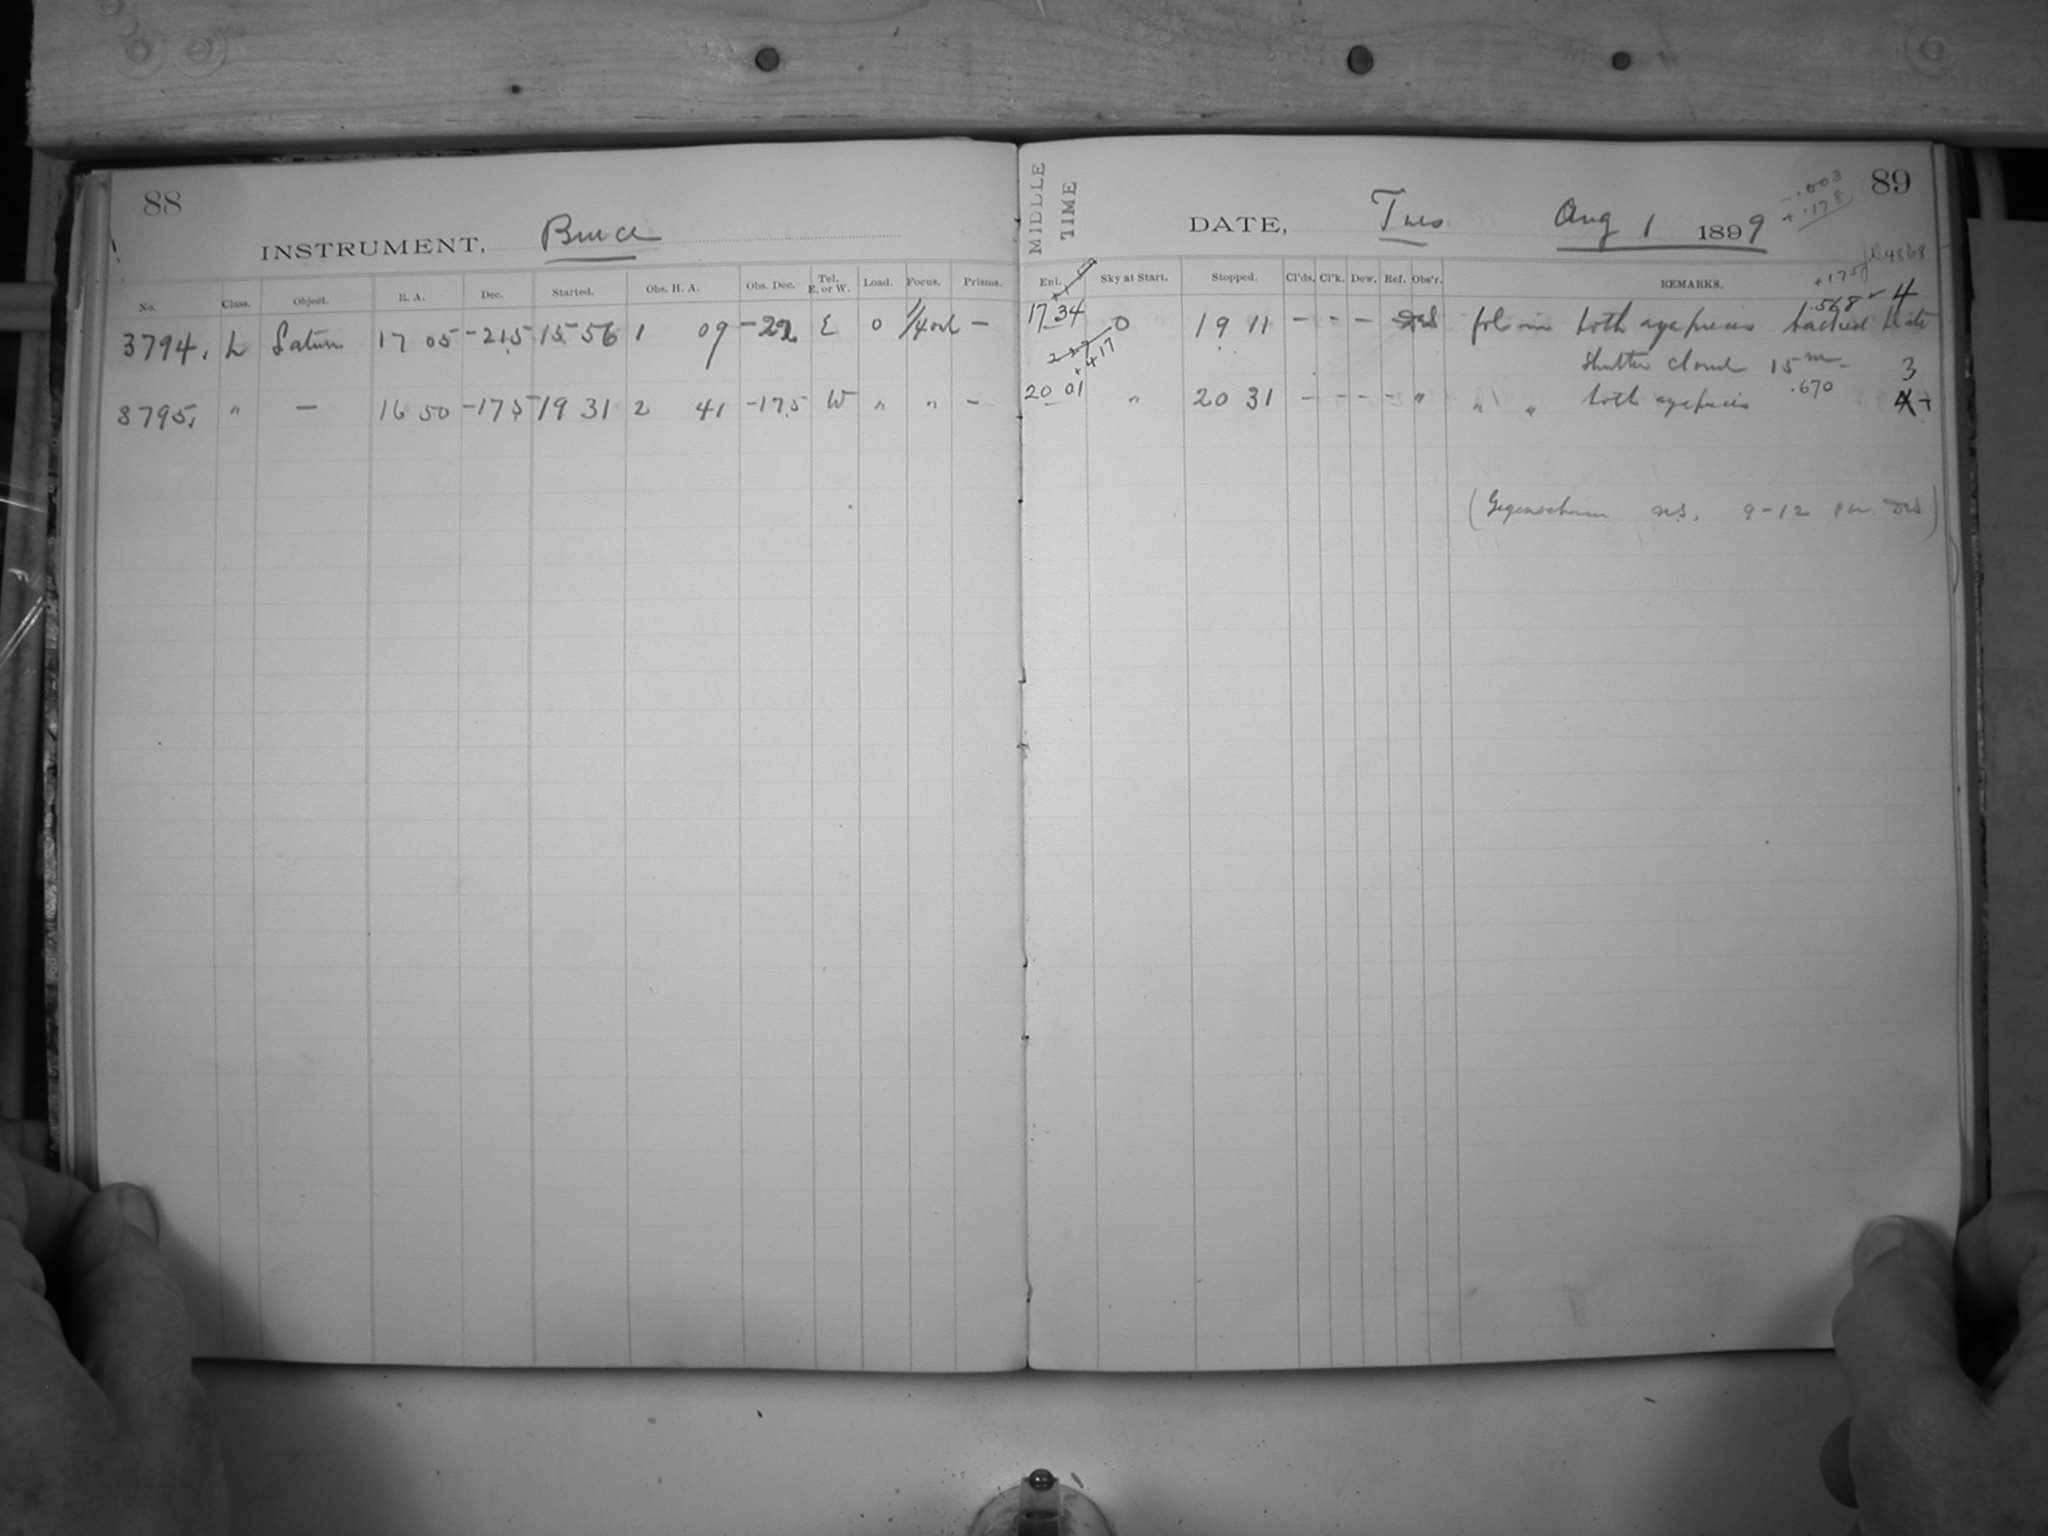 88
INSTRUMENT, Bruce
No. Class. Object. R. A. Dec. Started. Obs. H. A. Obs. Dec. Tel. E. or W. Load. Focus. Prisms.
3794. L Saturn 17 05 -21.5 15 56 1 09 -22 E 0 –
3795. " – 16 50 -17.5 19 31 2 41 -17.5 W " " –
MIDDLE TIME
DATE, Tues Aug 1 1899
-.003
+.178
89
4868
+175
Enl. Sky at Start. Stopped. Cl'ds. Cl'k. Dew. Ref. Obs'r. REMARKS.
.568 4
17 34 0 19 11 – – – fol on both eyepieces backed plate
+ 417
shutter closed 15m 3
20 01 " 20 31 – – – – " " " both eyepieces .670
(Gegenschein n.s. 9-12 pm